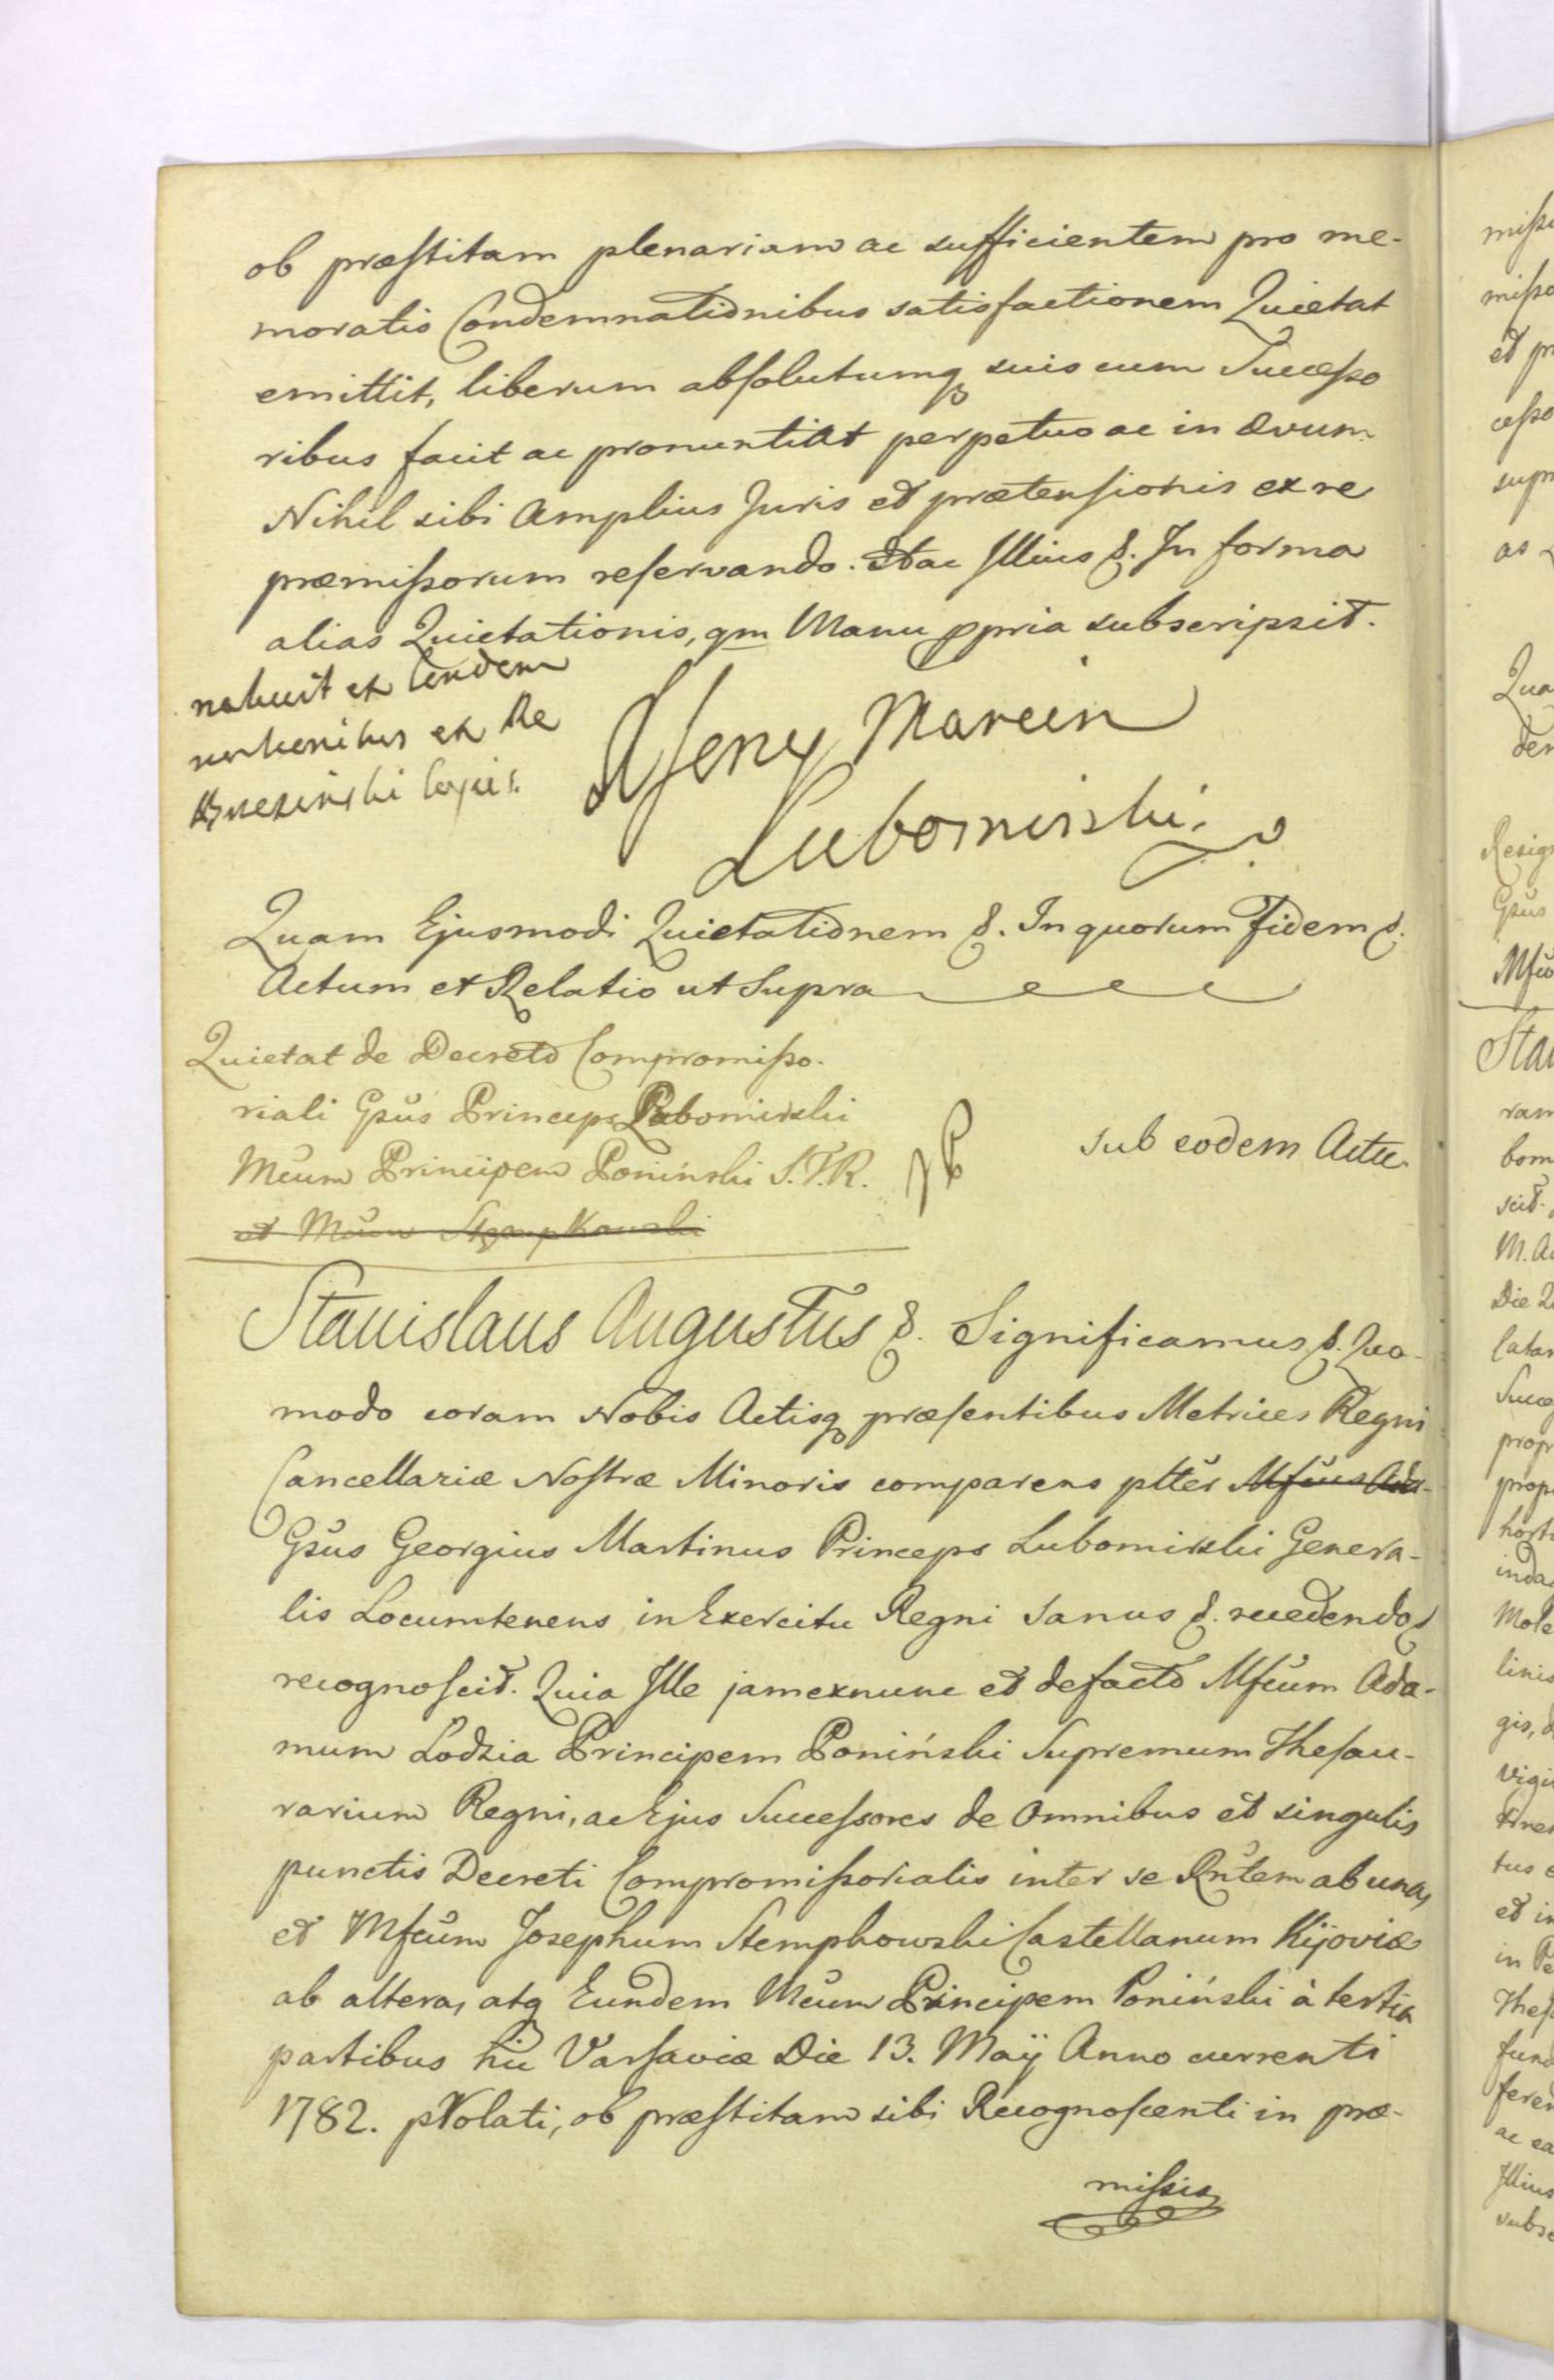 ob præstitam plenariam ac sufficientem pro me-
moratis Condemnationibus satisfactionem Quietat
emittit, liberum absolutumq suis cum Successo
ribus facit ac pronuntiat perpetuo ac in ævum
Nihil sibi Amplius Juris et prætensionis ex re
præmissorum reservando. Hac Illius &. In forma
alias Quietationis, qm Manu ppria subscripsit.
ex
ex Re
Jerzy Marcin
Lubomirski
Quam Ejusmodi Quietationem &. In quorum Fidem &.
Actum et Relatio ut Supra
Quietat de Decreto Compromisso-
riali Gsus Princeps Lubomirski
Mcum Principem Poniński S.T.R.
et Mcum Stempkowski
sub eodem Actu
Stanislaus Augustus &. Significamus &. Quo-
modo coram Nobis Actisq præsentibus Metrices Regni
Cancellariæ Nostræ Minoris comparens ptter Mfcus Ada-
Gsus Georgius Martinus Princeps Lubomirski Genera-
lis Locumtenens in Exercitu Regni sanus &. recedendo &
recognoscit. Quia Ille jam ex nunc et de facto Mfcum Ada-
mum Lodzia Principem Poniński Supremum Thesau-
rarium Regni, ac Ejus Successores de Omnibus et singulis
punctis Decreti Compromissorialis inter se Rntem ab una,
et Mfcum Josephum Stempkowski Castellanum Kijoviæ
ab altera, atq Eundem Mcum Principem Poniński à tertia
partibus hic Varsaviæ Die 13. Maÿ Anno currenti
1782. ob præstitam sibi Recognoscenti in præ-
missis